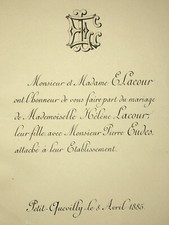 Monsieur et Madame E. Lacour
ont l'honneur de vous faire part du mariage
de Mademoiselle Hélène Lacour,
leur fille avec Monsieur Pierre Eudes,
attaché à leur Etablissement.
Petit-Quevilly, le 8 Avril 1885.